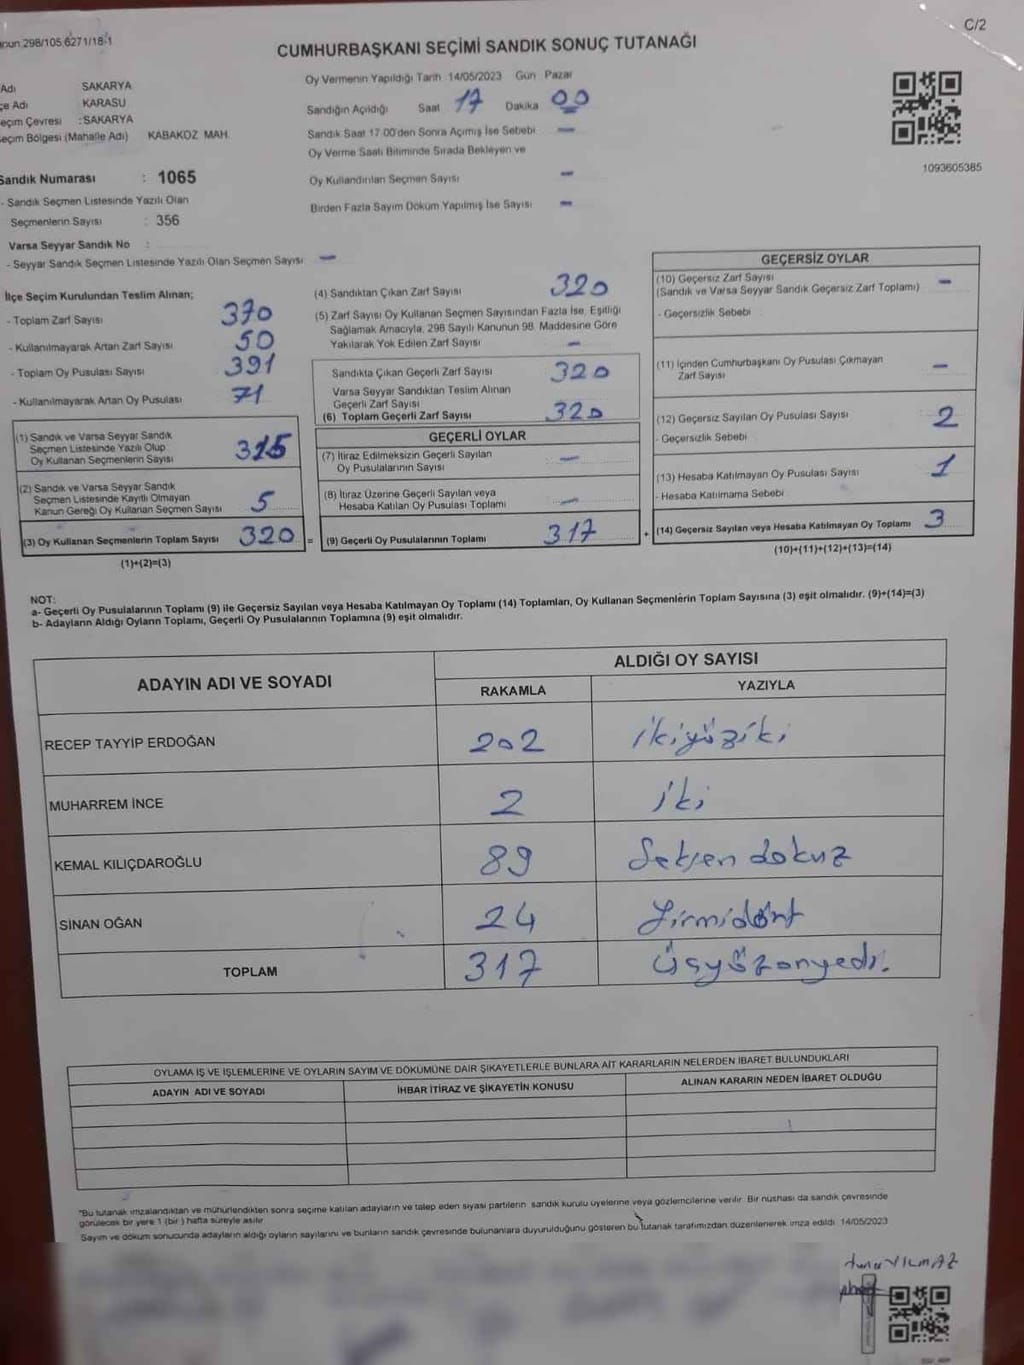 C/2
298/105,6271/18-1
CUMHURBAŞKANI SEÇİMİ SANDIK SONUÇ TUTANAĞI
Adı SAKARYA
çe Adı KARASU
eçim Çevresi : SAKARYA
eçim Bölgesi (Mahalle Adı) KABAKOZ MAH.
Sandık Numarası : 1065
- Sandık Seçmen Listesinde Yazılı Olan
Seçmenlerin Sayısı : 356
Varsa Seyyar Sandık No :
- Seyyar Sandık Seçmen Listesinde Yazılı Olan Seçmen Sayısı -
Oy Vermenin Yapıldığı Tarih 14/05/2023 Gün Pazar
Sandığın Açıldığı Saat 17 Dakika 00
Sandık Saat 17.00'den Sonra Açımış İse Sebebi -
Oy Verme Saati Bitiminde Sırada Bekleyen ve
Oy Kullandırılan Seçmen Sayısı -
Birden Fazla Sayım Döküm Yapılmış İse Sayısı -
1093605385
İlçe Seçim Kurulundan Teslim Alınan;
- Toplam Zarf Sayısı 370
- Kullanılmayarak Artan Zarf Sayısı 50
- Toplam Oy Pusulası Sayısı 391
- Kullanılmayarak Artan Oy Pusulası 71
(1) Sandık ve Varsa Seyyar Sandık
Seçmen Listesinde Yazılı Olup
Oy Kullanan Seçmenlerin Sayısı 315
(2) Sandık ve Varsa Seyyar Sandık
Seçmen Listesinde Kayıtlı Olmayan
Kanun Gereği Oy Kullanan Seçmen Sayısı 5
(3) Oy Kullanan Seçmenlerin Toplam Sayısı 320 =
(1)+(2)=(3)
(4) Sandıktan Çıkan Zarf Sayısı 320
(5) Zarf Sayısı Oy Kullanan Seçmen Sayısından Fazla İse, Eşitliği
Sağlamak Amacıyla, 298 Sayılı Kanunun 98. Maddesine Göre
Yakılarak Yok Edilen Zarf Sayısı -
Sandıkta Çıkan Geçerli Zarf Sayısı 320
Varsa Seyyar Sandıktan Teslim Alınan
Geçerli Zarf Sayısı
(6) Toplam Geçerli Zarf Sayısı 320
GEÇERLİ OYLAR
(7) İtiraz Edilmeksizin Geçerli Sayılan
Oy Pusulalarının Sayısı -
(8) İtiraz Üzerine Geçerli Sayılan veya
Hesaba Katılan Oy Pusulası Toplamı -
(9) Geçerli Oy Pusulalarının Toplamı 317 +
GEÇERSİZ OYLAR
(10) Geçersiz Zarf Sayısı
(Sandık ve Varsa Seyyar Sandık Geçersiz Zarf Toplamı) -
- Geçersizlik Sebebi
(11) İçinden Cumhurbaşkanı Oy Pusulası Çıkmayan
Zarf Sayısı -
(12) Geçersiz Sayılan Oy Pusulası Sayısı 2
- Geçersizlik Sebebi
(13) Hesaba Katılmayan Oy Pusulası Sayısı 1
- Hesaba Katılmama Sebebi
(14) Geçersiz Sayılan veya Hesaba Katılmayan Oy Toplamı 3
(10)+(11)+(12)+(13)=(14)
NOT:
a- Geçerli Oy Pusulalarının Toplamı (9) ile Geçersiz Sayılan veya Hesaba Katılmayan Oy Toplamı (14) Toplamları, Oy Kullanan Seçmenlerin Toplam Sayısına (3) eşit olmalıdır. (9)+(14)=(3)
b- Adayların Aldığı Oyların Toplamı, Geçerli Oy Pusulalarının Toplamına (9) eşit olmalıdır.
ADAYIN ADI VE SOYADI
ALDIĞI OY SAYISI
RAKAMLA YAZIYLA
RECEP TAYYİP ERDOĞAN 202 ikiyüziki
MUHARREM İNCE 2 iki
KEMAL KILIÇDAROĞLU 89 Seksen dokuz
SİNAN OĞAN 24 Yirmidört
TOPLAM 317 Üçyüzonyedi.
OYLAMA İŞ VE İŞLEMLERİNE VE OYLARIN SAYIM VE DÖKÜMÜNE DAİR ŞİKAYETLERLE BUNLARA AİT KARARLARIN NELERDEN İBARET BULUNDUKLARI
ADAYIN ADI VE SOYADI İHBAR İTİRAZ VE ŞİKAYETİN KONUSU ALINAN KARARIN NEDEN İBARET OLDUĞU
"Bu tutanak imzalandıktan ve mühürlendikten sonra seçime katılan adayların ve talep eden siyasi partilerin sandık kurulu üyelerine veya gözlemcilerine verilir. Bir nüshası da sandık çevresinde
görülecek bir yere 1 (bir) hafta süreyle asılır
Sayım ve döküm sonucunda adayların aldığı oyların sayılarını ve bunların sandık çevresinde bulunanlara duyurulduğunu gösteren bu tutanak tarafımızdan düzenlenerek imza edildi. 14/05/2023
YILMAZ